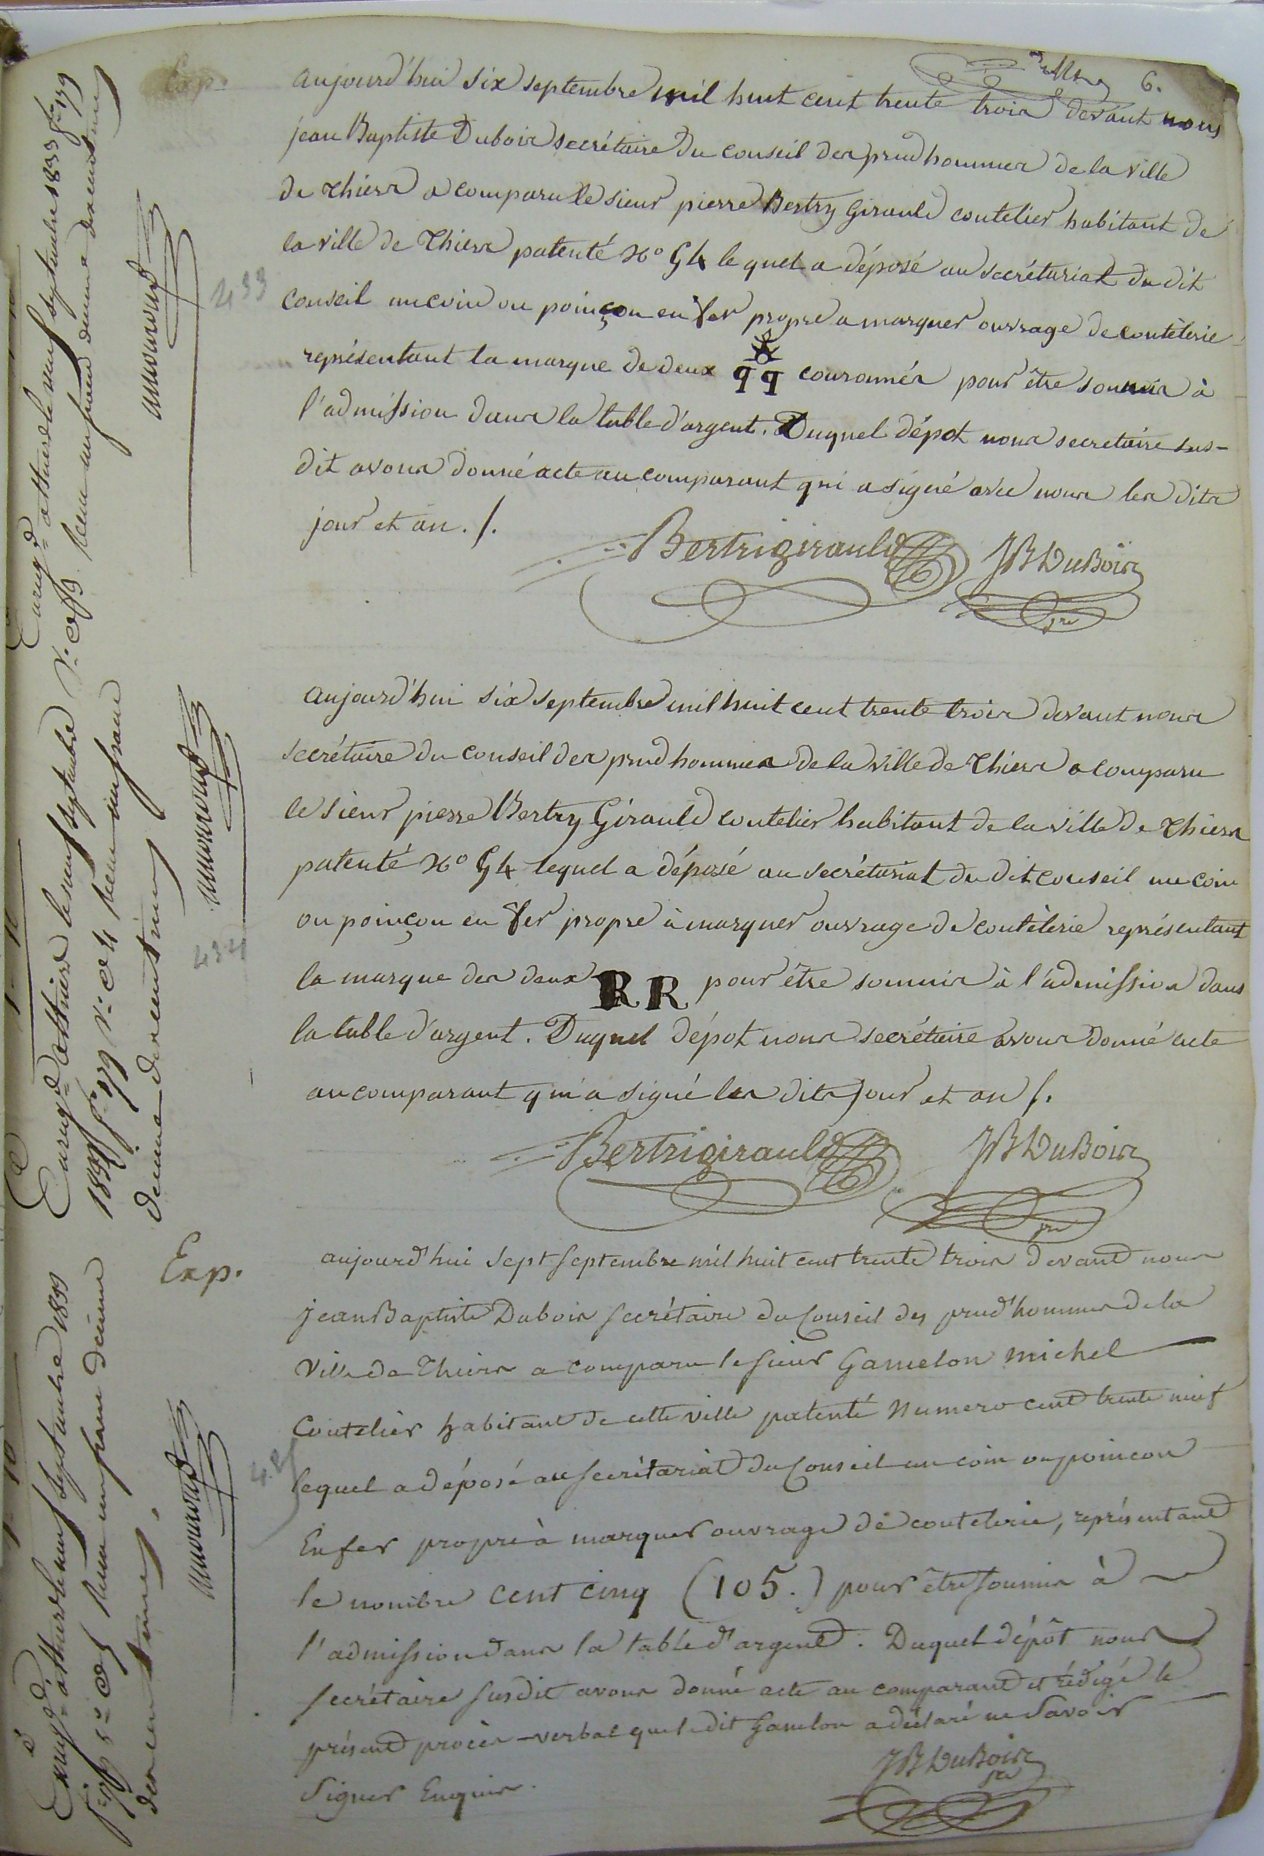 6.
Exp.
aujourd'hui six septembre mil huit cent trente trois devant nous
jean Baptiste Dubois secrétaire du conseil des prudhommes de la ville
de Thiers a comparu le sieur pierre Bertry Girauld coutelier habitant de
la ville de Thiers patenté No 54 lequel a déposé au secrétariat du dit
conseil un coin ou poinçon en fer propre a marquer ouvrage de coutèlerie
représentant la marque de deux 99 couronnés pour être soumis à
l'admission dans la table d'argent. Duquel dépot nous secretaire sus-
dit avons donné acte au comparant qui a signé avec nous les dits
jour et an ./.
Bertrigirauld JB Dubois
sre
433
Enregd. à thiers le neuf septembre 1833 fo 179
vo Co 3 reçu un franc decime dix centimes
aujourd'hui six septembre mil huit cent trente trois devant nous
secrétaire du conseil des prudhommes de la ville de Thiers a comparu
le sieur pierre Bertry Girauld coutelier habitant de la ville de Thiers
patenté No 54 lequel a déposé au secrétariat du dit conseil un coin
ou poinçon en fer propre à marquer ouvrage de coutèlerie représentant
la marque des deux RR pour être soumis à l'admission dans
la table d'argent. Duquel dépot nous secrétaire avons donné acte
au comparant qui a signé les dits jour et an ./.
Bertrigirauld JB Dubois
sre
434
Enregd. à thiers le neuf septembre
1833 fo 179 vo Co 4 reçu un franc
decime dix centimes
Exp.
aujourd'hui sept septembre mil huit cent trente trois devant nous
jean Baptiste Dubois secrétaire du Conseil des prud'hommes de la
Ville de Thiers a comparu le sieur Gamelon michel
Coutelier habitant de cette ville patenté Numero cent trente neuf
lequel a déposé au secrétariat du Conseil un coin ou poincon
En fer propre à marquer ouvrage de coutelerie, représentant
le nombre cent cinq (105.) pour être soumis à
l'admission dans la table d'argent. Duquel dépôt nous
secrétaire susdit avons donné acte au comparant et rédigé le
présent procès-verbal que le dit Gamelon a déclaré ne Savoir
Signer Enquis.
JB Dubois
sre
435
Enregd. à thiers le neuf septembre 1833
fo 179 vo Co 5 reçu un franc decime
dix centimes